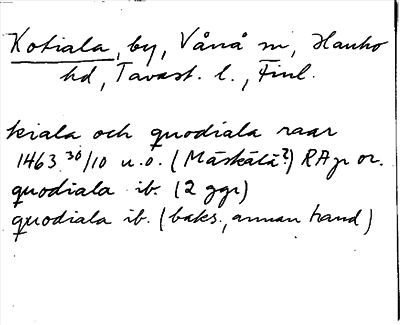 Kotiala, by, Vånå sn, Hauho
hd, Tavast. l., Finl.
kiala och quodiala raar
1463 30/10 u.o. (Mäskälä?) RA pr or.
quodiala ib. (2 ggr)
quodiala ib. (baks., annan hand)